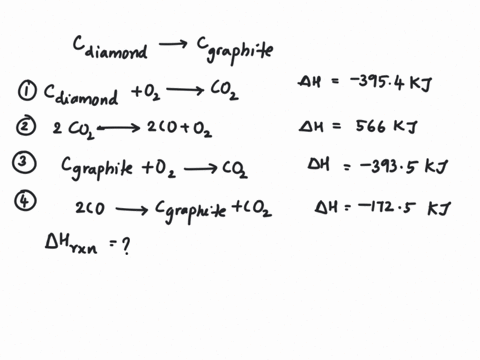 C diamond → C graphite
① C diamond + O₂ → CO₂ ΔH = -395.4 KJ
② 2 CO₂ → 2CO + O₂ ΔH = 566 KJ
③ C graphite + O₂ → CO₂ ΔH = -393.5 KJ
④ 2CO → C graphite + CO₂ ΔH = -172.5 KJ
ΔH rxn = ?